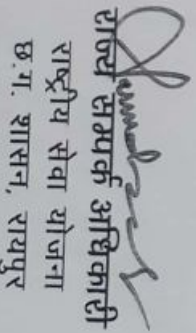 राज्य सम्पर्क अधिकारी
राष्ट्रीय सेवा योजना
छ.ग. शासन, रायपुर